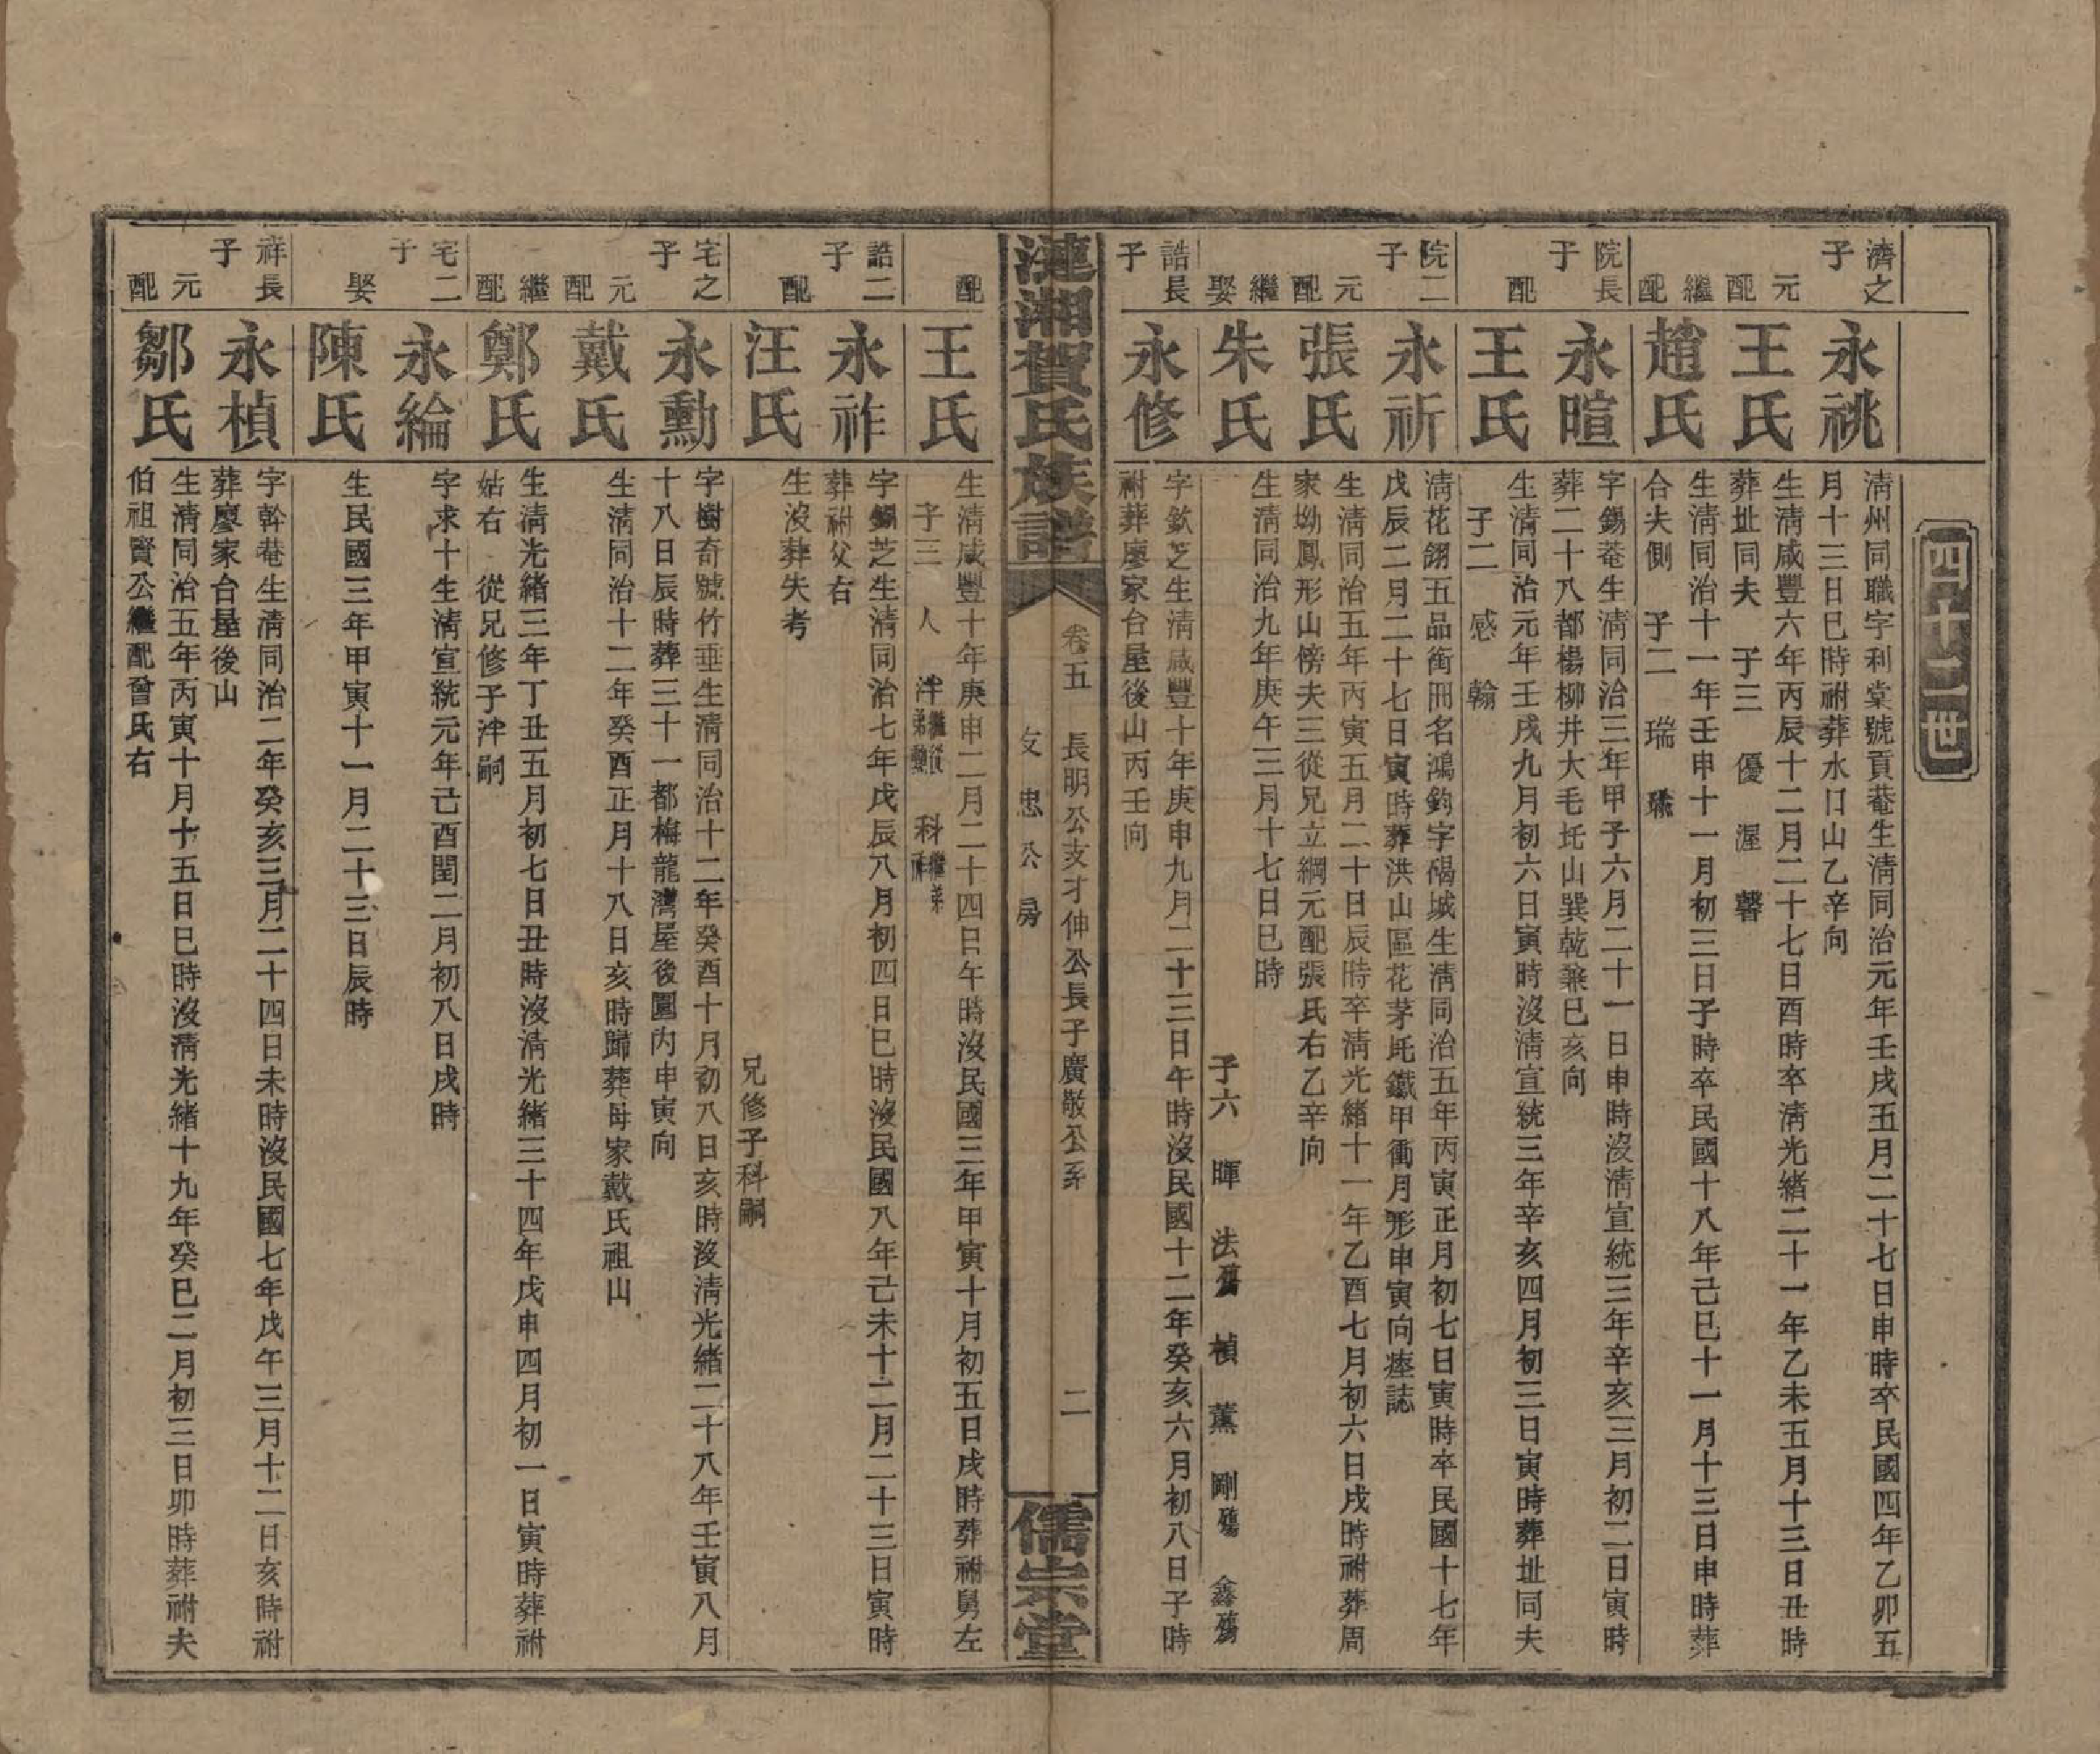 四十二世
濟之子
永祧
清州同職字利棠號貢菴生清同治元年壬戌五月二十七日申時卒民國四年乙卯五
月十三日巳時祔葬水口山乙辛向
元配
王氏
生清咸豐六年丙辰十二月二十七日酉時卒清光緒二十一年乙未五月十三日丑時
葬址同夫 子三 優 渥 馨
繼配
趙氏
生清同治十一年壬申十一月初三日子時卒民國十八年己巳十一月十三日申時葬
合夫側 子二 瑞
院長子
永暄
字錫菴生清同治三年甲子六月二十一日申時沒清宣統三年辛亥三月初二日寅時
葬二十八都楊柳井大毛坵山巽乾兼巳亥向
配
王氏
生清同治元年壬戌九月初六日寅時沒清宣統三年辛亥四月初三日寅時葬址同夫
子二 感 翰
院二子
永祈
清花翎五品銜冊名鴻鈞字碣城生清同治五年丙寅正月初七日寅時卒民國十七年
戊辰二月二十七日寅時葬洪山區花茅坉鐵甲衝月形申寅向瘞誌
元配
張氏
生清同治五年丙寅五月二十日辰時卒清光緒十一年乙酉七月初六日戌時祔葬周
家坳鳳形山傍夫三從兄立綱元配張氏右乙辛向
繼娶
朱氏
生清同治九年庚午三月十七日巳時
子六 暉 法殤 楨 薰 剛殤 鑫殤
誥長子
永修
字欽芝生清咸豐十年庚申九月二十三日午時沒民國十二年癸亥六月初八日子時
祔葬廖家台屋後山丙壬向
漣湘賀氏族譜
卷五 長明公支才伸公長子廣敬公系 二
友忠公房
儒宗堂
配
王氏
生清咸豐十年庚申二月二十四日午時沒民國三年甲寅十月初五日戌時葬祔舅左
子三 人 泮繼從弟勳 科繼弟祚
誥二子
永祚
字錫芝生清同治七年戊辰八月初四日巳時沒民國八年己未十二月二十三日寅時
葬祔父右
配
汪氏
生沒葬失考
兄修子科嗣
宅之子
永勳
字樹奇號竹垂生清同治十二年癸酉十月初八日亥時沒清光緒二十八年壬寅八月
十八日辰時葬三十一都梅龍灣屋後園內申寅向
元配
戴氏
生清同治十二年癸酉正月十八日亥時歸葬母家戴氏祖山
繼配
鄭氏
生清光緒三年丁丑五月初七日丑時沒清光緒三十四年戊申四月初一日寅時葬祔
姑右 從兄修子泮嗣
宅二子
永綸
字求十生清宣統元年己酉閏二月初八日戌時
娶
陳氏
生民國三年甲寅十一月二十三日辰時
祥長子
永楨
字幹菴生清同治二年癸亥三月二十四日未時沒民國七年戊午三月十二日亥時祔
葬廖家台屋後山
元配
鄒氏
生清同治五年丙寅十月十五日巳時沒清光緒十九年癸巳二月初三日卯時葬祔夫
伯祖賢公繼配曾氏右